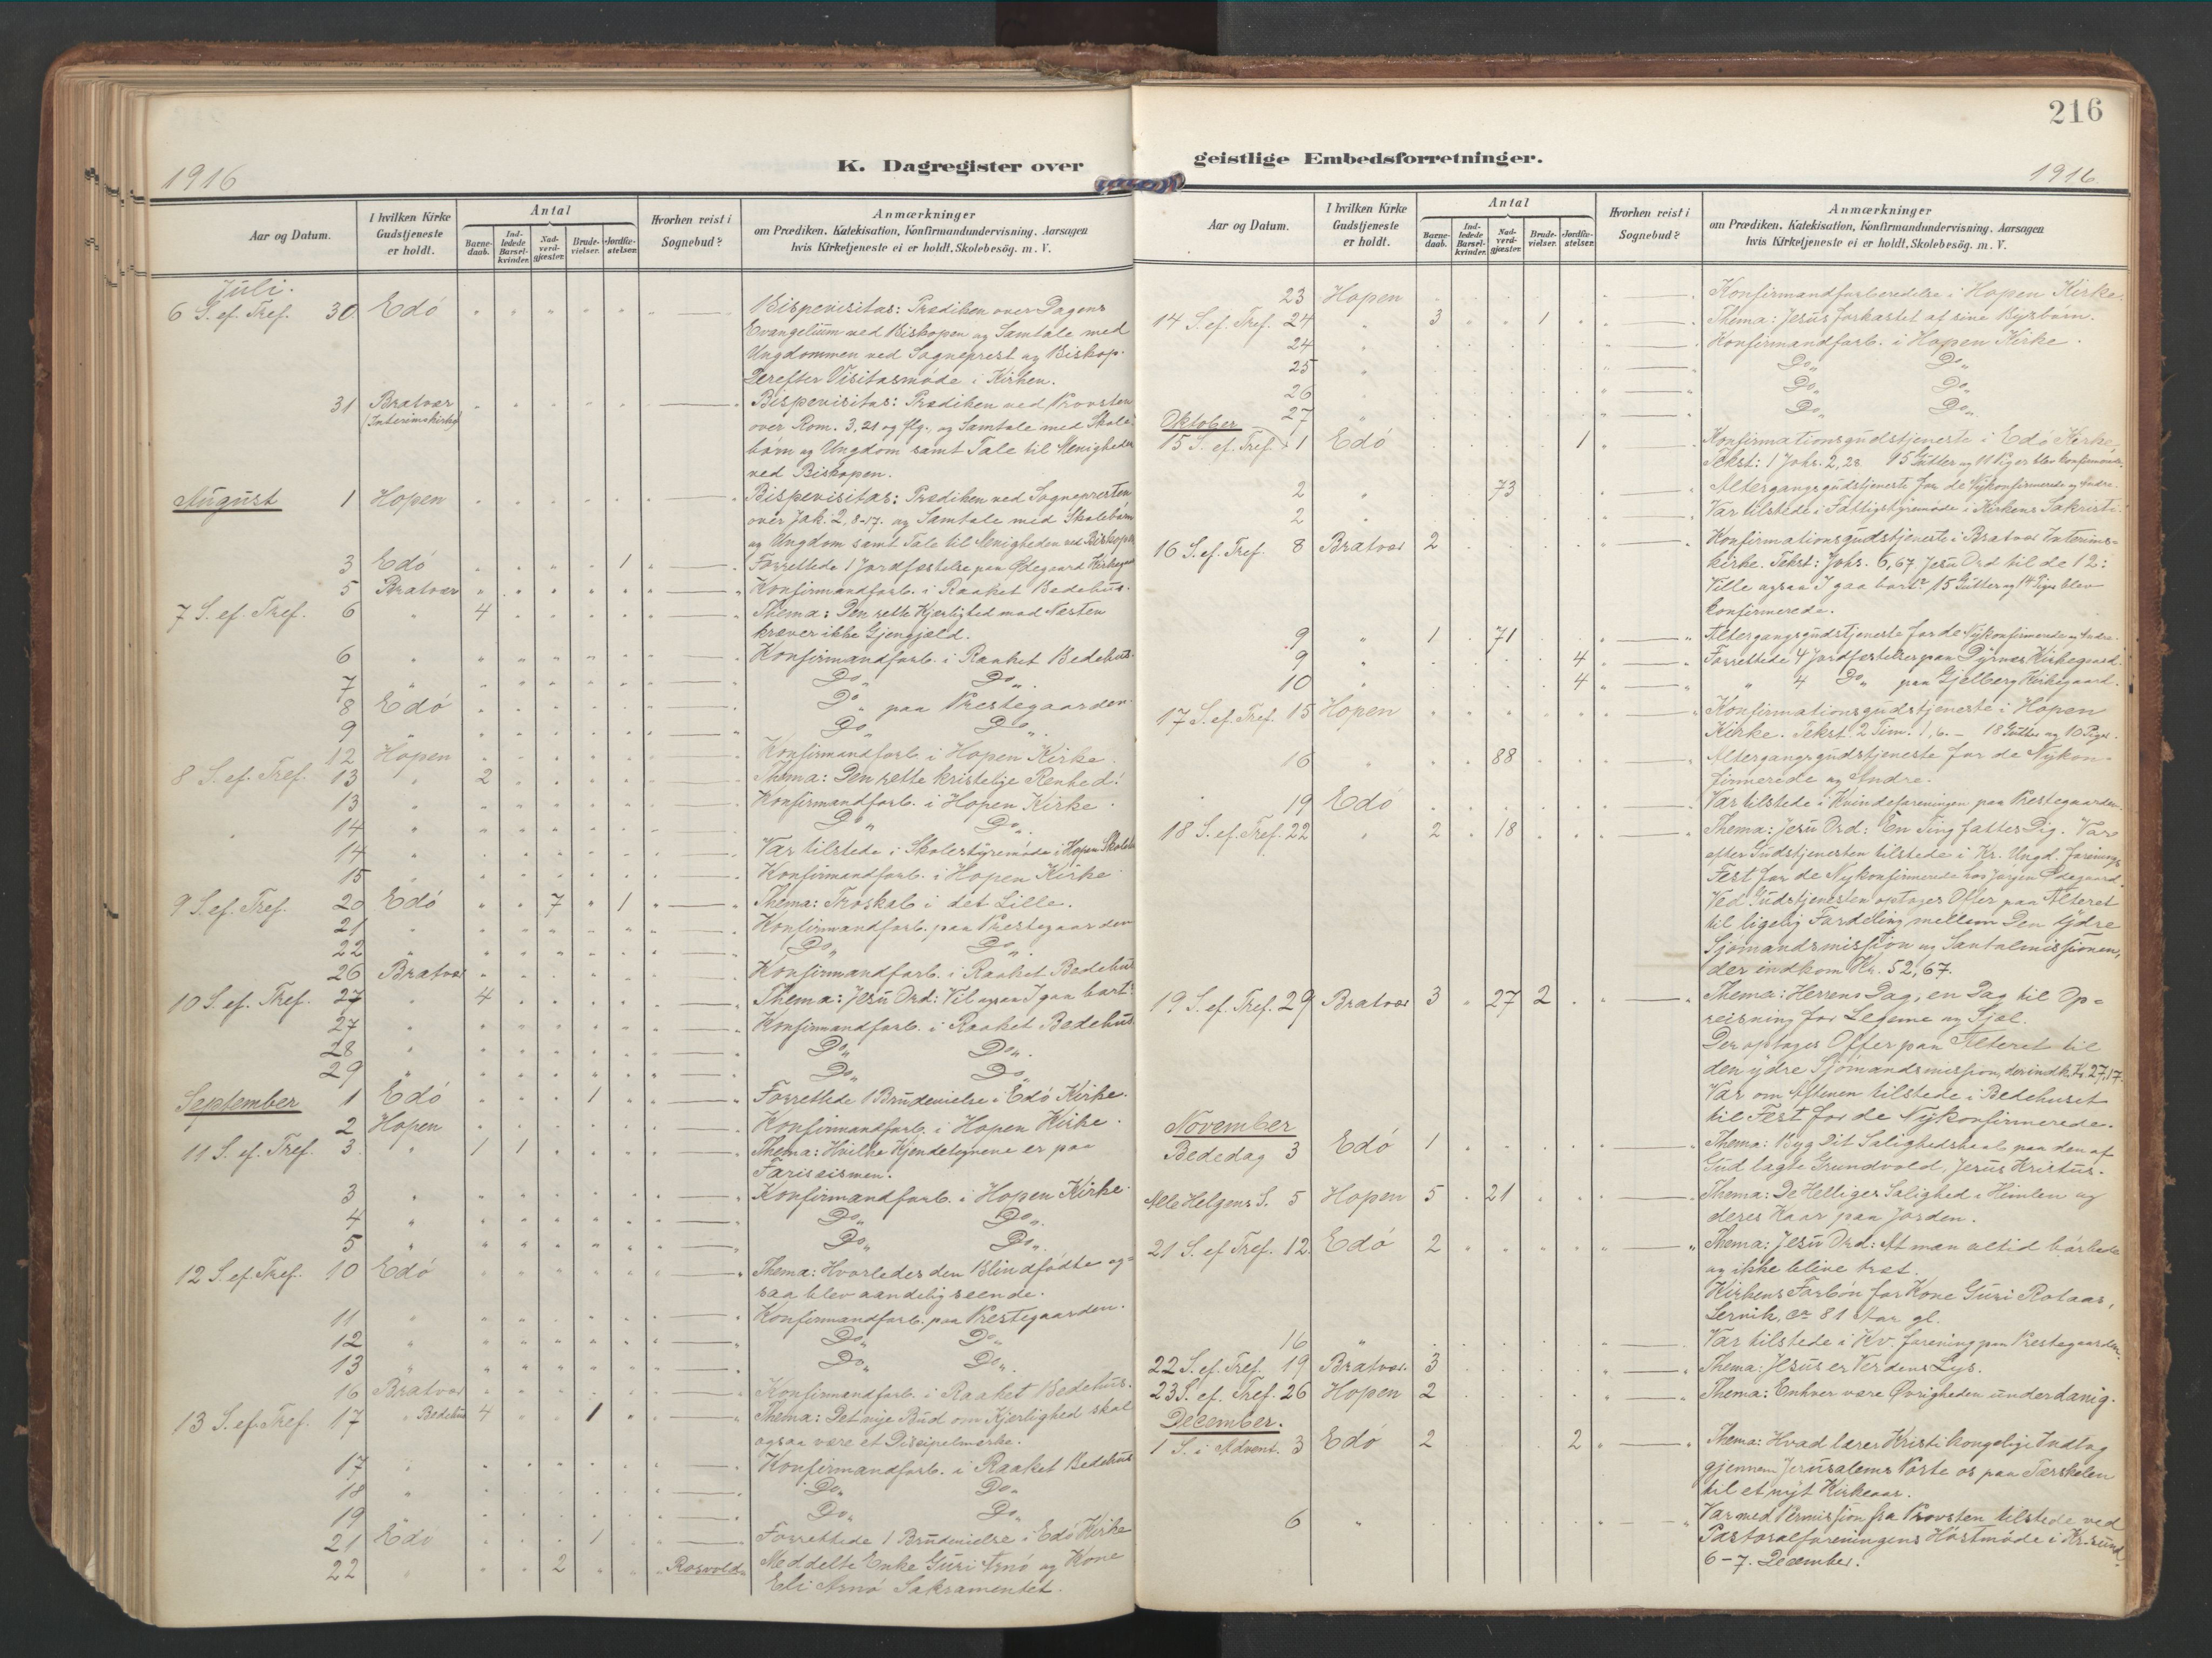 216
1916
K. Dagregister over
geistlige Embedsforretninger.
1916.
Aar og Datum.
I hvilken Kirke Gudstjeneste er holdt.
Antal
Barne-daab.
Ind-ledede Barsel-kvinder.
Nad-verd-gjæster.
Brude-vielser.
Jordfæ-stelser.
Hvorhen reist i Sognebud?
Anmærkninger
om Prædiken. Katekisation, Konfirmandundervisning. Aarsagen
hvis Kirketjeneste ei er holdt. Skolebesög. m. V.
Juli.
6 S. ef. Tref. 30 Edö Bispevisitas: Prædiken over Dagens
Evangelium ved Biskopen og Samtale med
Ungdommen ved Sogneprest og Biskop.
Derefter Visitasmöde i Kirken.
31 Bratvær Bispevisitas: Prædiken ved Provsten
(Interimskirke) over Rom. 3,21 og flg., og Samtale med Skole-
börn og Ungdom samt Tale til Menigheden
ved Biskopen.
August 1 Hopen Bispevisitas: Prædiken ved Sognepresten
over Jak. 2, 8-17. og Samtale med Skolebörn
og Ungdom samt Tale til Menigheden ved Biskopen
3 Edö 1 Forrettede 1 Jordfæstelse paa Ødegaard Kirkegaard
5 Bratvær Konfirmandforb. i Raaket Bedehus.
7 S. ef. Tref. 6 " 4 Thema: Den rette Kjærlighed mod Næsten
kræver ikke Gjengjæld.
6 " Konfirmandforb. i Raaket Bedehus.
7 " Do " Do "
8 Edö Do " paa Prestegaarden
9 " Do " Do "
12 Hopen Konfirmandforb. i Hopen Kirke.
8 S. ef. Tref. 13 " 2 Thema: Den rette kristelige Renhed.
13 " Konfirmandforb. i Hopen Kirke.
14 " Do " Do "
14 " Var tilstede i Skolestyremöde i Hopen
15 " Konfirmandforb. i Hopen Kirke.
9 S. ef. Tref. 20 Edö 7 1 Thema: Troskab i det Lille.
21 " Konfirmandforb. paa Prestegaarden
22 " Do " Do "
26 Bratvær Konfirmandforb. i Raaket Bedehus
10 S. ef. Tref. 27 " 4 Thema: Jesu Ord: Vil ogsaa I gaa bort?
27 " Konfirmandforb. i Raaket Bedehus
28 " Do " Do "
29 " Do " Do "
September 1 Edö 1 Forrettede 1 Brudevielse i Edö Kirke.
2 Hopen Konfirmandforb. i Hopen Kirke.
11 S. ef. Tref. 3 " 1 1 Thema: Hvilke Kjendetegnene er paa
Fariseismen.
3 " Konfirmandforb. i Hopen Kirke.
4 " Do " Do "
5 " Do " Do "
12 S. ef. Tref. 10 Edö Thema: Hvorledes den Blindfödte og-
saa blev aandelig seende.
11 " Konfirmandforb. paa Prestegaarden.
12 " Do " Do "
13 " Do " Do "
16 Bratvær Konfirmandforb. i Raaket Bedehus.
13 S. ef. Tref. 17 " Bedehus 4 1 Thema: Det nye Bud om Kjærlighed skal
ogsaa være et Discipelmærke.
17 " Konfirmandforb. i Raaket Bedehus
18 " Do " Do "
19 " Do " Do "
21 Edö 1 Forrettede 1 Brudevielse i Edö Kirke
22 " 2 " Rosvold " Meddelte Enke Guri Arnö og Kone
Eli Arnö Sakramentet.
Aar og Datum.
I hvilken Kirke Gudstjeneste er holdt.
Antal
Barne-daab.
Ind-ledede Barsel-kvinder.
Nad-verd-gjæster.
Brude-vielser.
Jordfæ-stelser.
Hvorhen reist i Sognebud?
Anmærkninger
om Prædiken. Katekisation, Konfirmandundervisning. Aarsagen
hvis Kirketjeneste ei er holdt, Skolebesög. m. V.
23 Hopen Konfirmandforberedelse i Hopen Kirke.
14 S. ef. Tref. 24 " 3 1 Thema: Jesus forkastet af sine Bysbarn.
24 " Konfirmandforb. i Hopen Kirke.
25 " Do " Do "
26 " Do " Do "
27 " Do " Do "
Oktober
15 S. ef. Tref. 1 Edö 1 Konfirmationsgudstjeneste i Edö Kirke,
Tekst: 1 Johs. 2, 28. 15 Gutter og 11 Piger blev konfirmerede.
2 " 73 Altergangsgudstjeneste for de Nykonfirmerede og Andre.
2 " Var tilstede i Fattigstyremöde i Kirkens Sakristi.
16 S. ef. Tref. 8 Bratvær 2 Konfirmationsgudstjeneste i Bratvær Interims-
kirke. Tekst: Johs. 6, 67 Jesu Ord til de 12:
Ville ogsaa I gaa bort? 15 Gutter og 14 Piger blev
konfirmerede.
9 " 1 71 Altergangsgudstjeneste for de Nykonfirmerede og Andre.
9 " 4 Forrettede 4 Jordfæstelser paa Dyrnes Kirkegaard.
10 " 4 " 4 Do " paa Gjelberg Kirkegaard.
17 S. ef. Tref. 15 Hopen Konfirmationsgudstjeneste i Hopen
Kirke. Tekst. 2 Tim. 1, 6. - 18 Gutter og 10 Piger.
16 " 88 Altergangsgudstjeneste for de Nykon-
firmerede og Andre.
19 Edö Var tilstede i Kvindeforeningen paa Prestegaarden.
18 S. ef. Tref. 22 " 2 18 Thema: Jesu Ord: En Ting fattes Dig. Var
efter Gudstjenesten tilstede i Kr. Ungd. forenings
Fest for de Nykonfirmerede hos Jörgen Ødegaard.
Ved Gudstjenesten optages Offer paa Alteret
til ligelig Fordeling mellem Den Ydre
Sjömandsmission og Santalmissionen,
der indkom Kr. 52,67.
19 S. ef. Tref. 29 Bratvær 3 27 2 Thema: Herrens Dag, en Dag til Op-
reisning for Legeme og Sjel.
Der optages Offer paa Alteret til
den ydre Sjömandsmission, der indk. Kr. 27,17.
Var om Aftenen tilstede i Bedehuset
til Fest for de Nykonfirmerede.
November
Bededag 3 Edö 1 Thema: Byg Dit Salighedshaab paa den af
Gud lagte Grundvold, Jesus Kristus.
Alle Helgens S. 5 Hopen 5 21 Thema: De Helliges Salighed i Himlen og
deres Kaar paa Jorden.
21 S. ef. Tref. 12. Edö 2 Thema: Jesu Ord: At man altid bör bede
og ikke blive træt.
Kirkens Forbön for Kone Guri Rotaas,
Lervik, ca 81 Aar gl.
16 " Var tilstede i Kv. forening paa Prestegaarden.
22 S. ef. Tref. 19 Bratvær. 3 Thema: Jesus er Verdens Lys.
23 S. ef. Tref. 26 Hopen 2 Thema: Enhver være Øvrigheden underdanig.
December.
1 S. i Advent. 3 Edö 2 2 Thema: Hvad lærer Kristi kongelige Indtog
gjennem Jerusalems Porte os paa Tærskelen
til et nyt Kirkeaar.
6 " Var med Permission fra Provsten tilstede ved
Pastoralforeningens Höstmöde i Kr.sund
6-7. December.